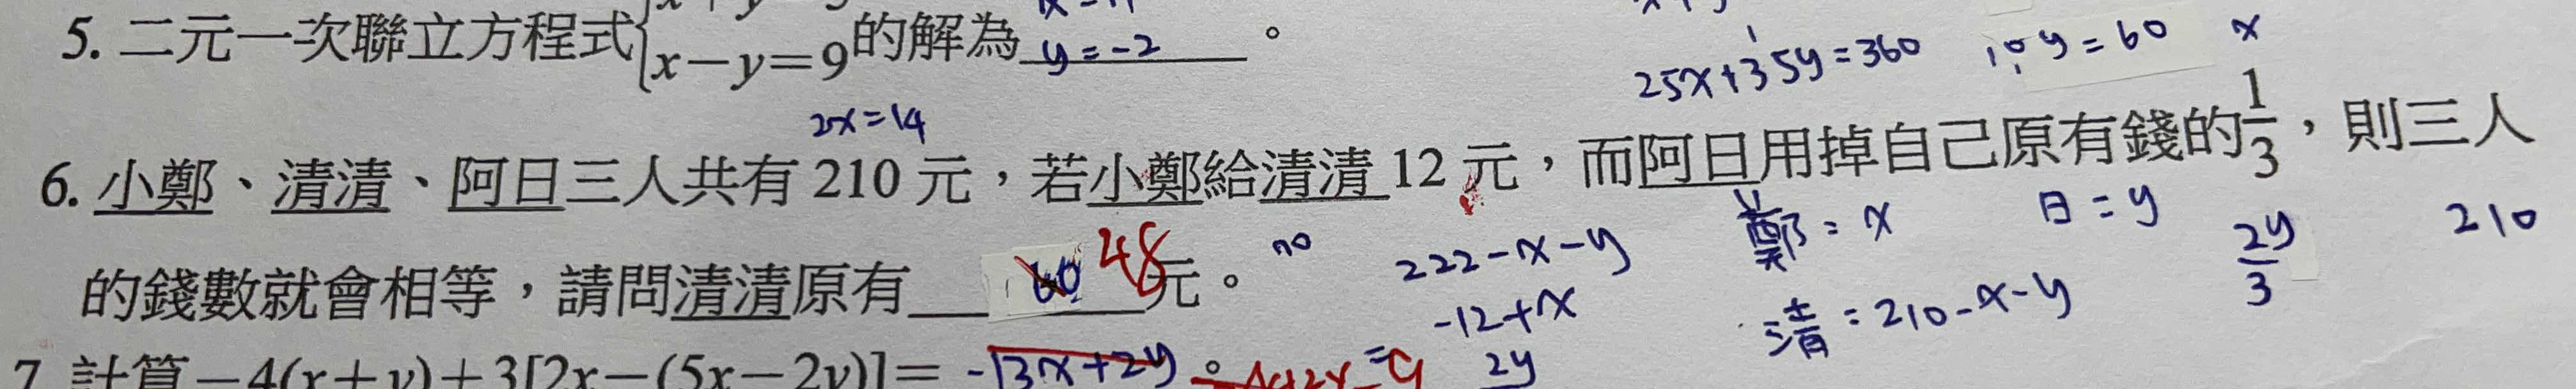 5. 二元一次聯立方程式{x-y=9的解為 y=-2 。
25x+35y=360
10y=60
x
2x=14
6. 小鄭、清清、阿日三人共有 210 元，若小鄭給清清 12 元，而阿日用掉自己原有錢的1/3，則三人
的錢數就會相等，請問清清原有 60 48元。
no
222-x-y
-12+x
2y
鄭=x
日=y
清=210-x-y
2y/3
210
7. 計算-4(x+y)+3[2x-(5x-2y)]= -13x+2y 。